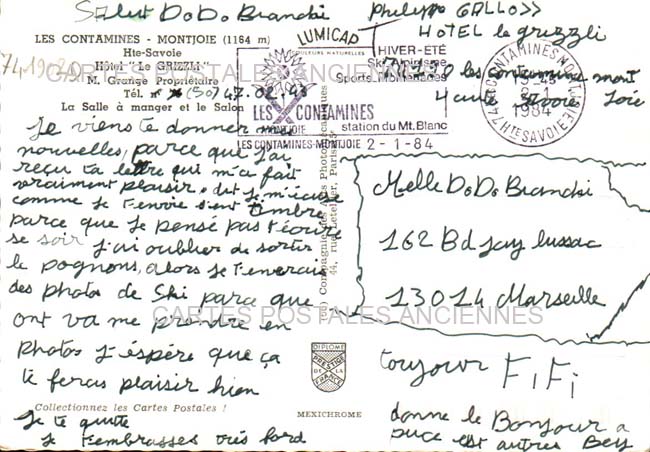 Salut DoDo Bianchi
Philippe GALLOSS
HOTEL le grizzli
74190 les contamines mont
Haute Savoie Joie
LES CONTAMINES - MONTJOIE (1164 m)
Hte-Savoie
Hôtel "Le GRIZZLI"
M. Grange Propriétaire
Tél. n° (50) 47.02.43
La Salle à manger et le Salon
LUMICAP
COULEURS NATURELLES
HIVER-ÉTÉ
Ski Alpinisme
Sports Promenades
LES CONTAMINES
MONTJOIE
station du Mt. Blanc
LES CONTAMINES-MONTJOIE 2-1-84
LES CONTAMINES MONTJOIE
15-45
2-1
1984
74 HTE SAVOIE
Je viens te donner mes
nouvelles, parce que j'ai
reçu ta lettre qui m'a fait
vraiment plaisir. dit je m'éxcuse
comme je t'envoie sient timbre
parce que je pensé pas t'écrire
se soir J'ai oublier de sorter
le pognons, alors je t'enverais
des photos de Ski parce que
ont va me prendre en
photos J'éspère que ça
te feras plaisir hien
Je te quite
Je t'embrasses très ford
Compagnie des Arts Photomécaniques
44, rue Letellier, Paris-15
Melle DoDo Bianchi
162 Bd jay lussac
13014 Marseille
toujour FiFi
donne le Bonjour a
puce est autres Bey
DIPLOME
PRESTIGE
DE LA
FRANCE
MEXICHROME
Collectionnez les Cartes Postales !
CARTES POSTALES ANCIENNES
CARTES POSTALES ANCIENNES